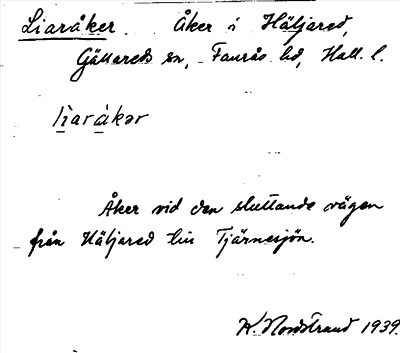 Liaråker. Åker i Häljared,
Gällareds sn, Faurås hd, Hall. l.
lìaràkər
Åker vid den sluttande vägen
från Häljared till Tjärnesjön.
K. Nordstrand 1939.